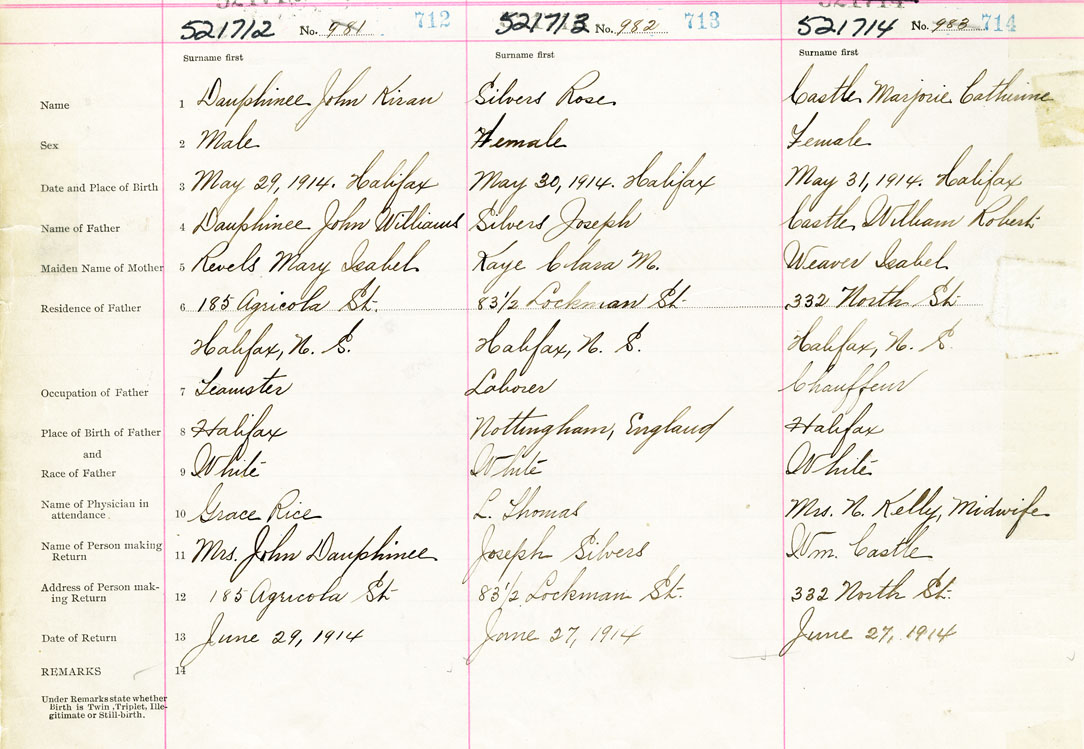 521712 No. 981 712 521713 No. 982 713 521714 No. 983 714
Surname first Surname first Surname first
Name 1 Dauphinee John Kiran Silvers Rose Castle Marjorie Catherine
Sex 2 Male Female Female
Date and Place of Birth 3 May 29, 1914. Halifax May 30, 1914. Halifax May 31, 1914. Halifax
Name of Father 4 Dauphinee John Williams Silvers Joseph Castle William Robert
Maiden Name of Mother 5 Revels Mary Isabel Kaye Clara M. Weaver Isabel
Residence of Father 6 185 Agricola St. 83 1/2 Lockman St. 332 North St.
Halifax, N. S. Halifax, N. S. Halifax, N. S.
Occupation of Father 7 Teamster Laborer Chauffeur
Place of Birth of Father 8 Halifax Nottingham, England Halifax
and
Race of Father 9 White White White
Name of Physician in
attendance. 10 Grace Rice L. Thomas Mrs. N. Kelly, Midwife
Name of Person making
Return 11 Mrs. John Dauphinee Joseph Silvers Wm. Castle
Address of Person mak-
ing Return 12 185 Agricola St. 83 1/2 Lockman St. 332 North St.
Date of Return 13 June 29, 1914 June 27, 1914 June 27, 1914
REMARKS 14
Under Remarks state whether
Birth is Twin, Triplet, Ille-
gitimate or Still-birth.